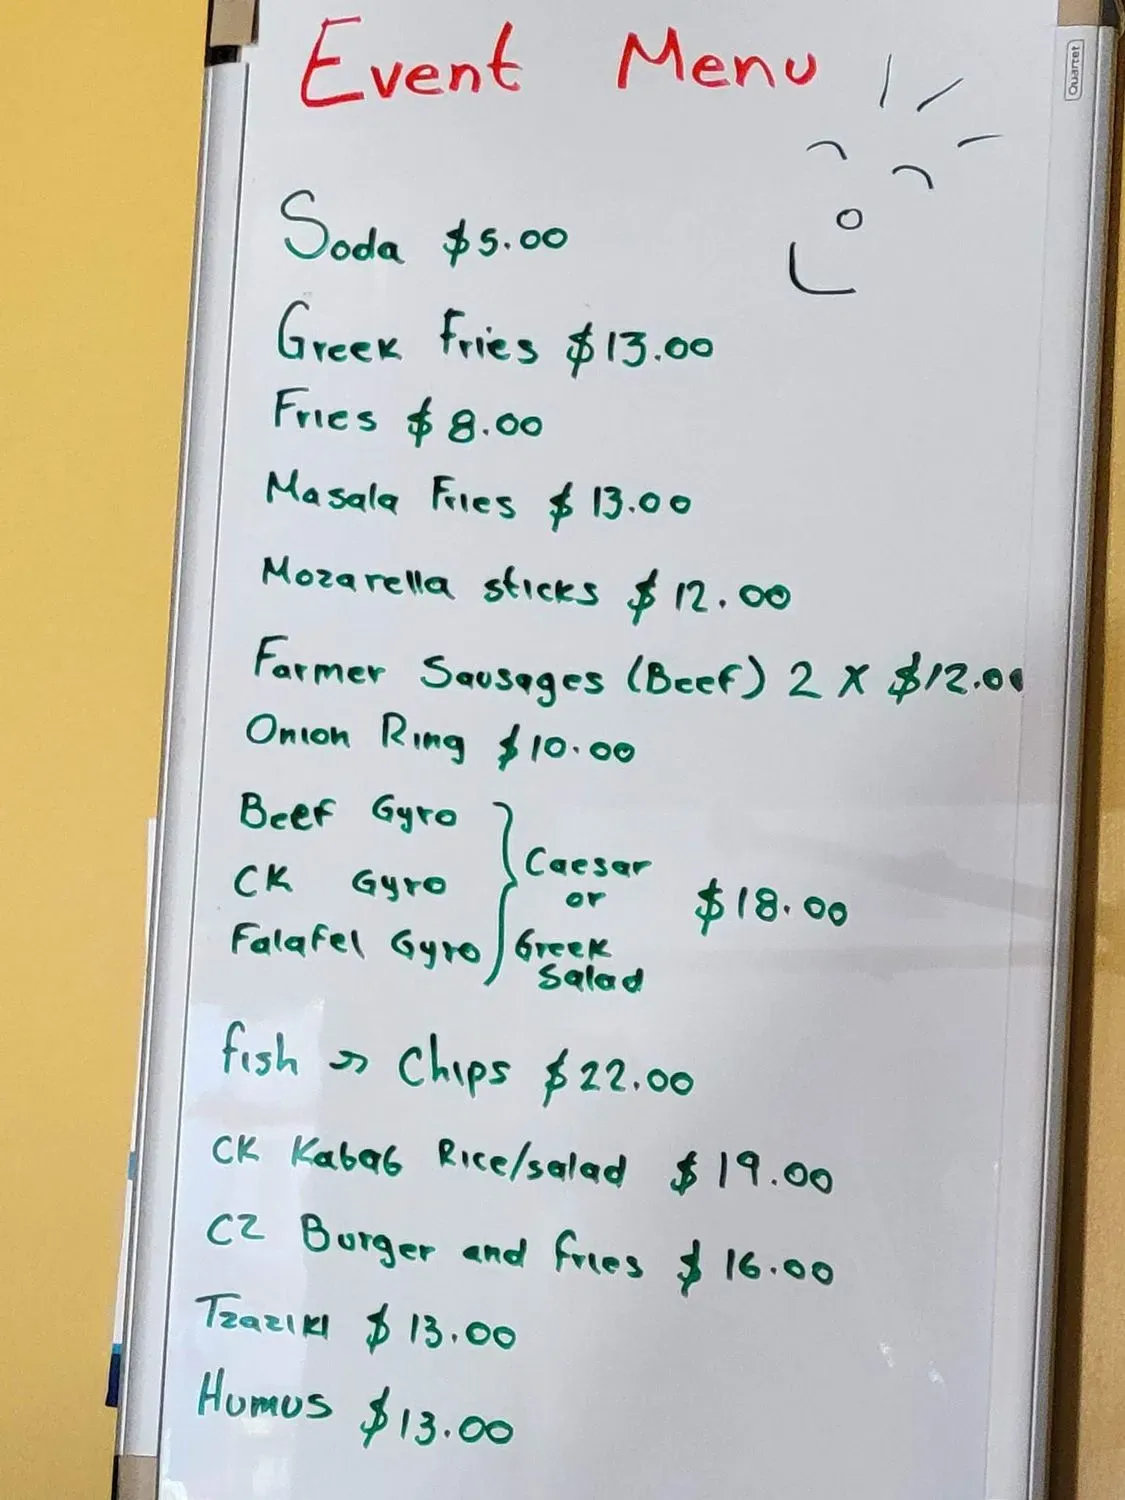 Event Menu
Quartet
Soda $5.00
Greek Fries $13.00
Fries $8.00
Masala Fries $13.00
Mozarella sticks $12.00
Farmer Sausages (Beef) 2 X $12.00
Onion Ring $10.00
Beef Gyro
CK Gyro
Falafel Gyro
Caesar
or
Greek
Salad
$18.00
fish Chips $22.00
CK Kabab Rice/salad $19.00
CZ Burger and fries $16.00
Tzaziki $13.00
Humus $13.00